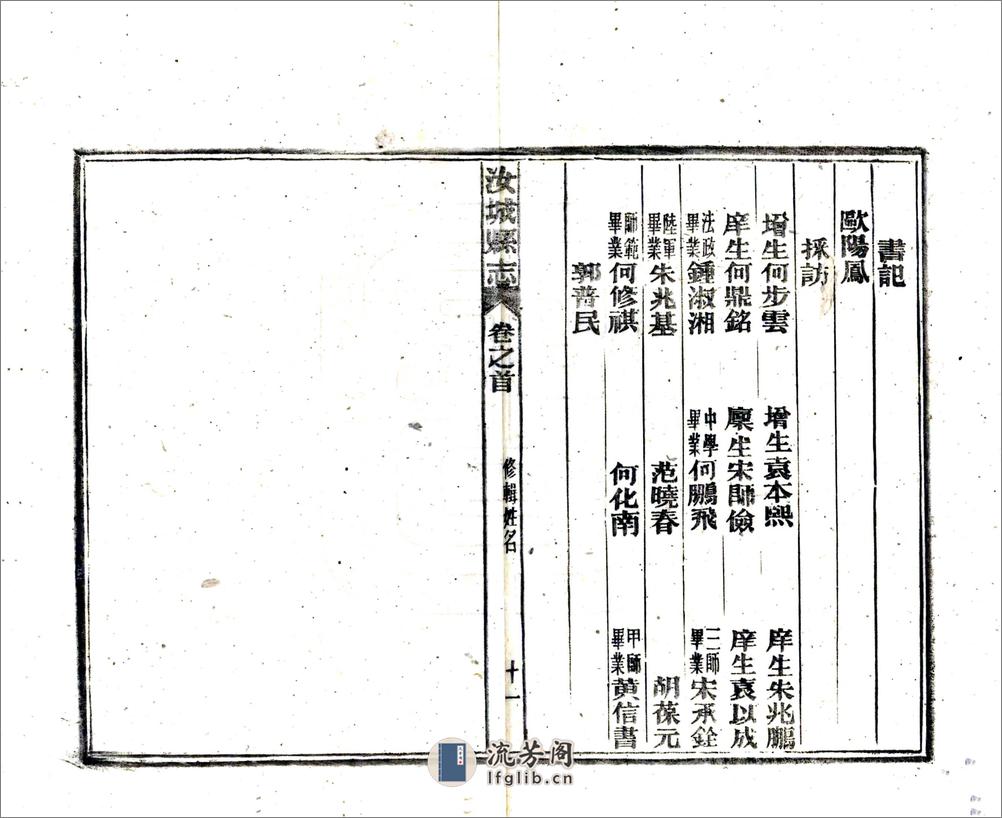 書記
歐陽鳳
採訪
增生何步雲　增生袁本熙　庠生朱兆鵬
庠生何鼎銘　廩生宋師儉　庠生袁以成
法政畢業鍾淑湘　中學畢業何鵬飛　三師畢業宋承銓
陸軍畢業朱兆基　范曉春　胡葆元
師範畢業何修祺　何化南　甲師畢業黃信書
郭普民
汝城縣志　卷之首　修輯姓名　十一
流芳阁
lfglib.cn